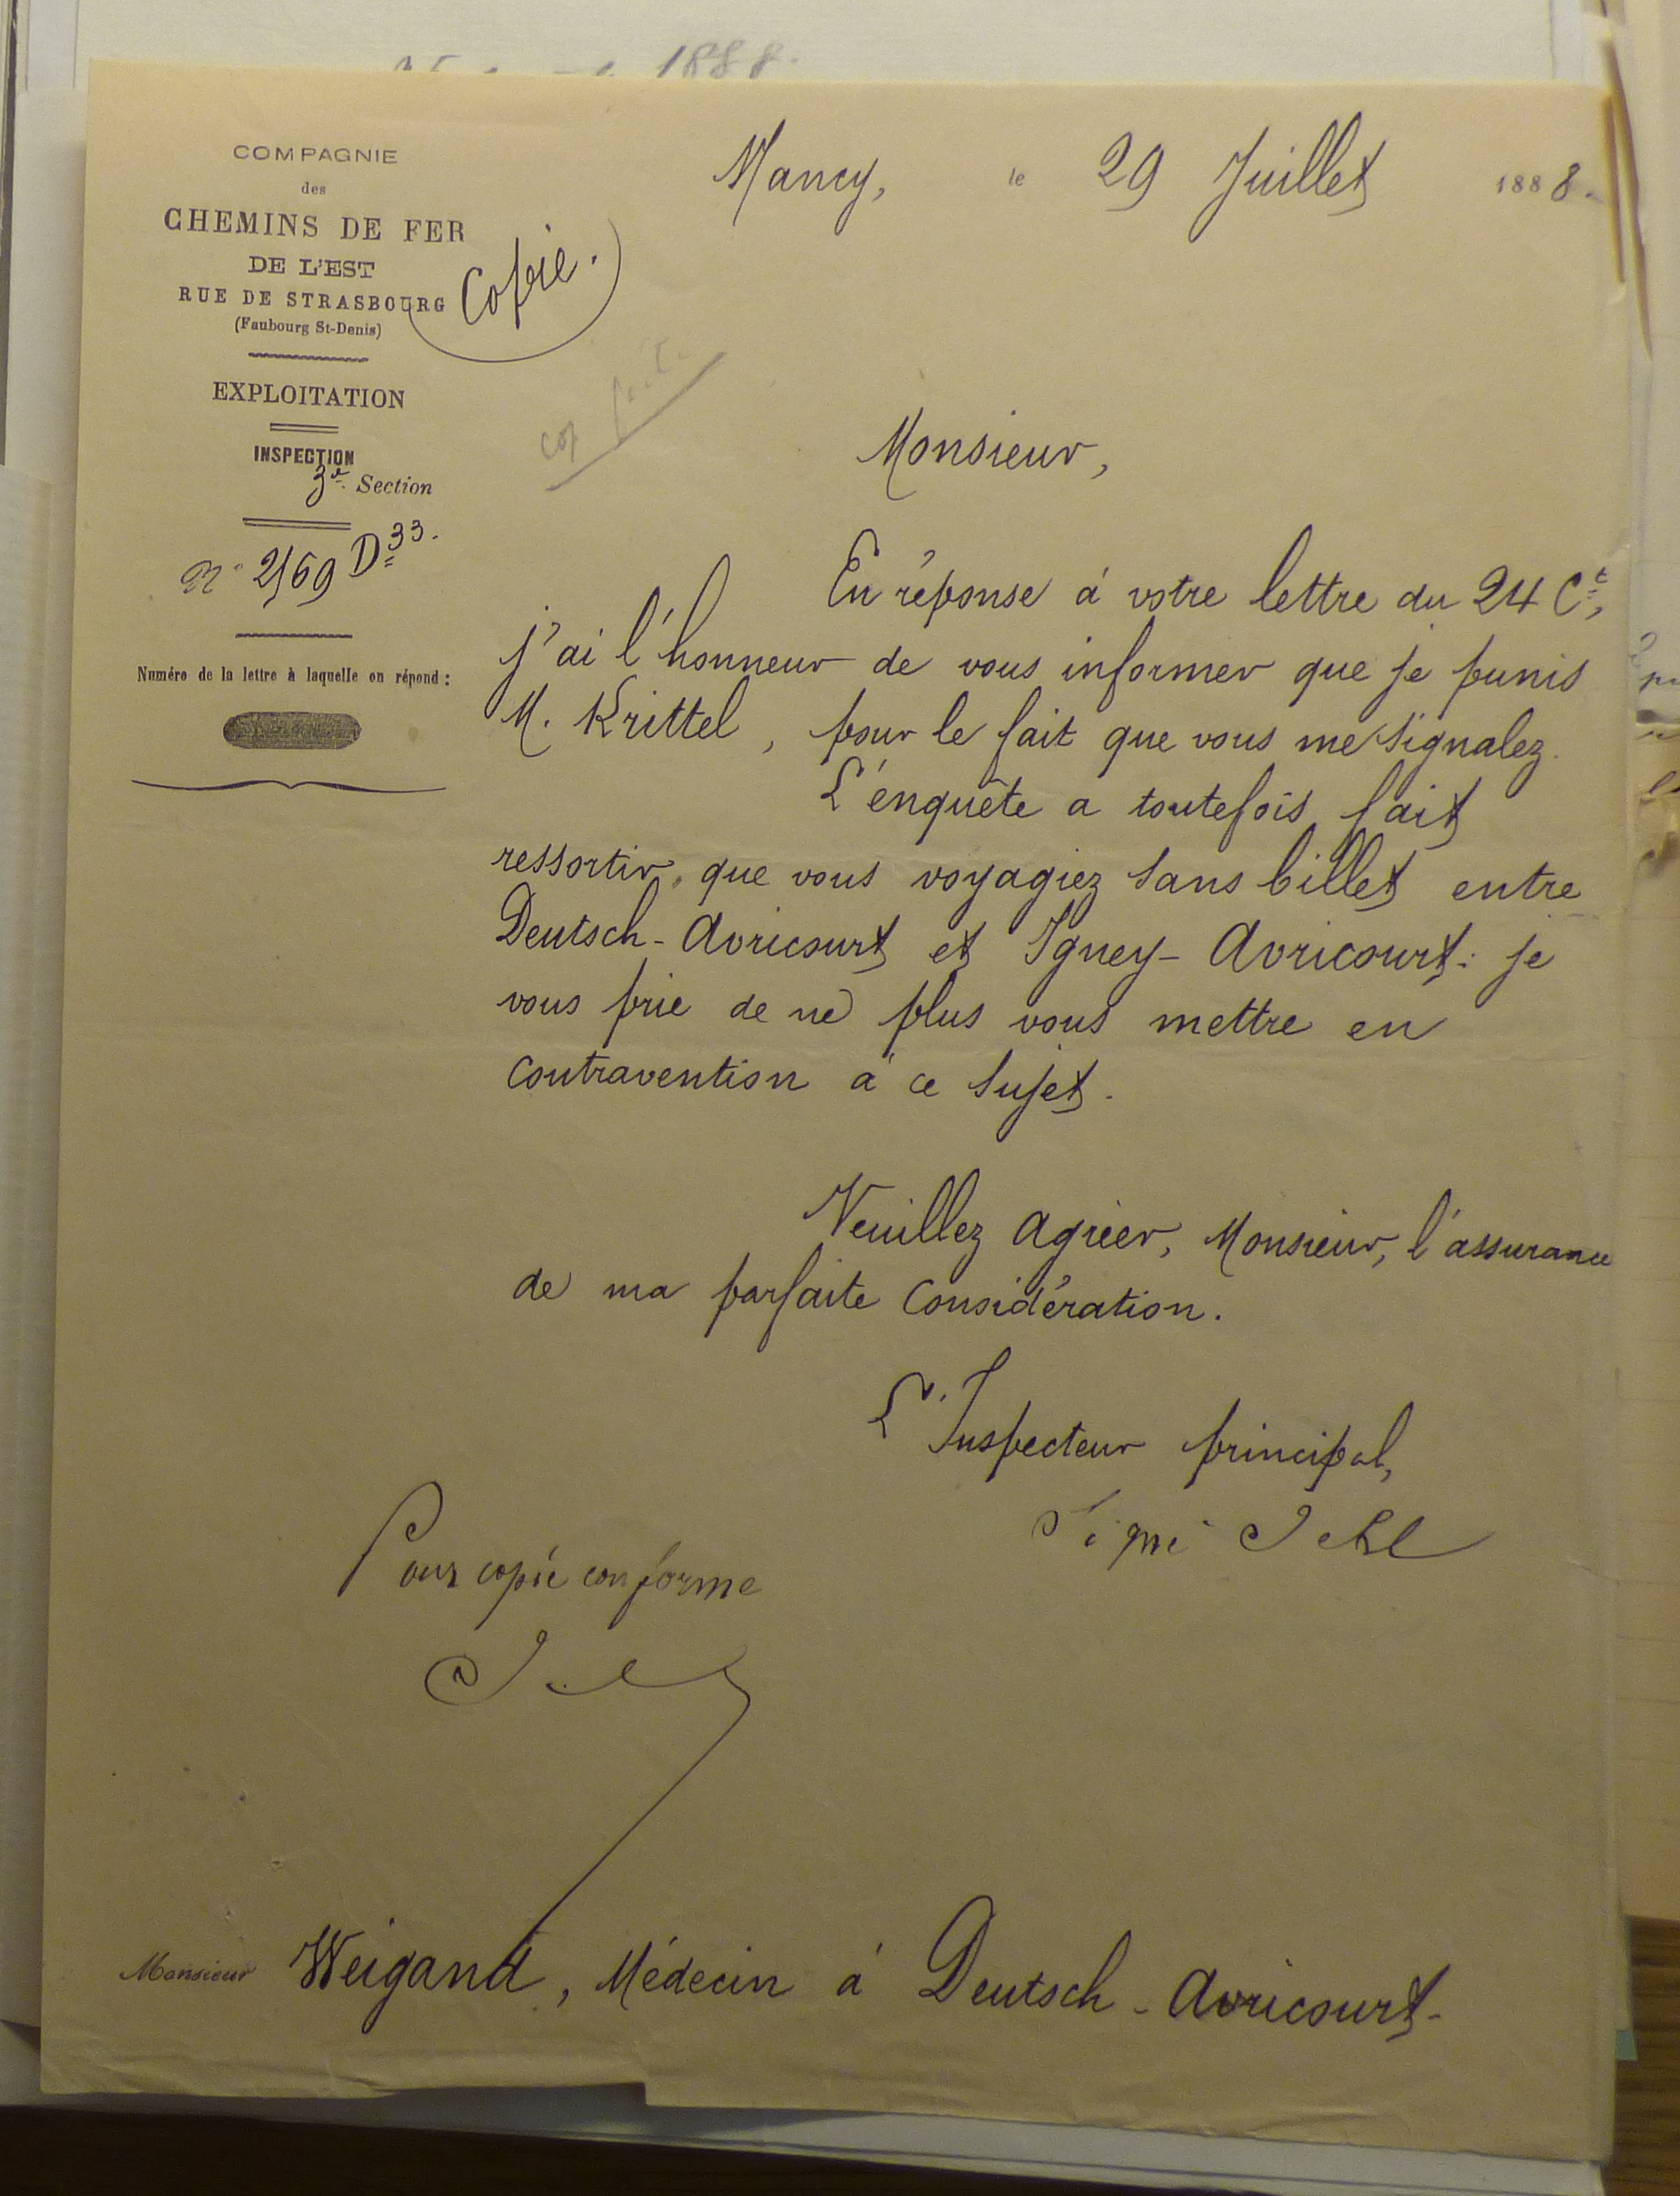 1888.
COMPAGNIE
des
CHEMINS DE FER
DE L'EST
RUE DE STRASBOURG
(Faubourg St-Denis)
Copie.
EXPLOITATION
INSPECTION
3e Section
N° 2169 D 33.
Numéro de la lettre à laquelle on répond :
Nancy, le 29 Juillet 1888.
Monsieur,
En réponse à votre lettre du 24 Ct,
j'ai l'honneur de vous informer que je punis
M. Krittel, pour le fait que vous me signalez.
L'énquête a toutefois fait
ressortir que vous voyagiez sans billet entre
Deutsch-Avricourt et Igney-Avricourt: je
vous prie de ne plus vous mettre en
contravention à ce sujet.
Veuillez agréer, Monsieur, l'assurance
de ma parfaite Considération.
L'Inspecteur principal,
Signé
Pour copie conforme
Monsieur Weigand, Médecin à Deutsch-Avricourt-